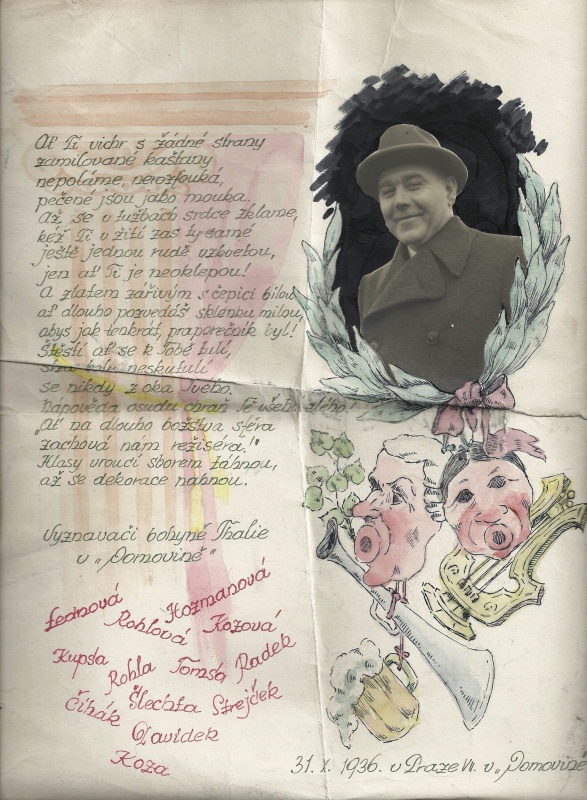 Ať Ti vichr s žádné strany
zamilované kaštany
nepoláme, nerozfouká,
pečené jsou jako mouka.
Až se v tužbách srdce zklame,
kéž Ti v žití zas ty samé
ještě jednou rudě vzkvetou,
jen ať Ti je neoklepou!
A zlatem zářivým s čepicí bílou
ať dlouho pozvedáš sklenku milou,
abys jak tenkrát, praporečník byl!
Štěstí ať se k Tobě tulí,
neskutulí
se nikdy z oka Tvého.
Nápověda osudu chraň Tě všeho zlého!
"Ať na dlouho božstva sféra
zachová nám režiséra!"
Hlasy vroucí sborem žahnou,
až se dekorace nahnou.
Vyznavači bohyně Thalie
v „Domovině"
Lednová Hozmanová
Rohlová Kozová
Kupsa Robla Tomsa Radek
Čihák Šlechta Strejček
Davidek
Koza
31. X. 1936. v Praze VII. v „Domovině